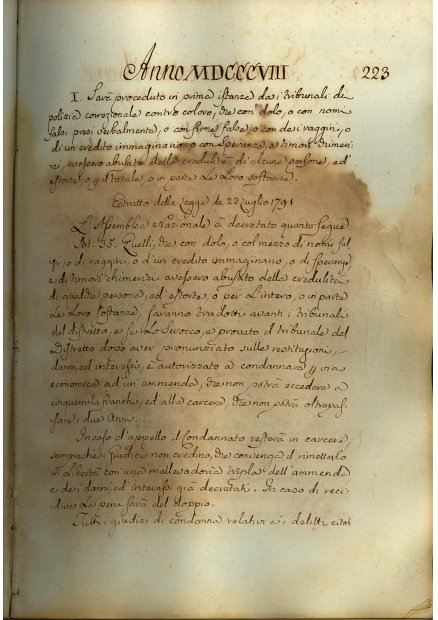 Anno MDCCCVIII 223
I. Sarà proceduto in prima istanza dai tribunali di
polizia correzionale contro coloro, che con dolo, o con nomi
falsi presi verbalmente, o con firme false, o con de i raggiri, o
di un credito immaginario, o con speranze, e timori chimeri-
ci, avessero abusato della credulità di alcune persone, ed
estorta, o il totale o in parte le loro sostanze.
Estratto della Legge de 22 Luglio 1791
L'Assemblea Nazionale à decretato quanto segue
Art: 35. Quelli, che con dolo, o col mezzo di nomi fal
si, o di raggiri, o d'un credito immaginario, o di speranze
e di timori chimerici avessero abusato della credulità
di qualche persona, ed estorte, o per l'intero, o in parte
le loro sostanze, saranno tradotti avanti i tribunali
del distretto, e se lo scrocco, è provato il tribunale del
Distretto dopo aver pronunziato sulle restituzioni,
danni, ed interessi, è autorizzato a condannare p via
economica ad un'ammenda, che non potrà eccedere a
cinquemila franchi, ed alla carcere, che non potrà oltrepas-
sare i due Anni.
In caso d'appello il condannato resterà in carcere
semprechè i Giudici non credino, che convenga il rimetterlo
in libertà con una mallevadoria tripla dell'ammenda
e dei danni, ed interessi già decretati. In caso di reci-
diva la pena sarà del doppio.
Tutti i giudizi di condanna relativi a i delitti citati